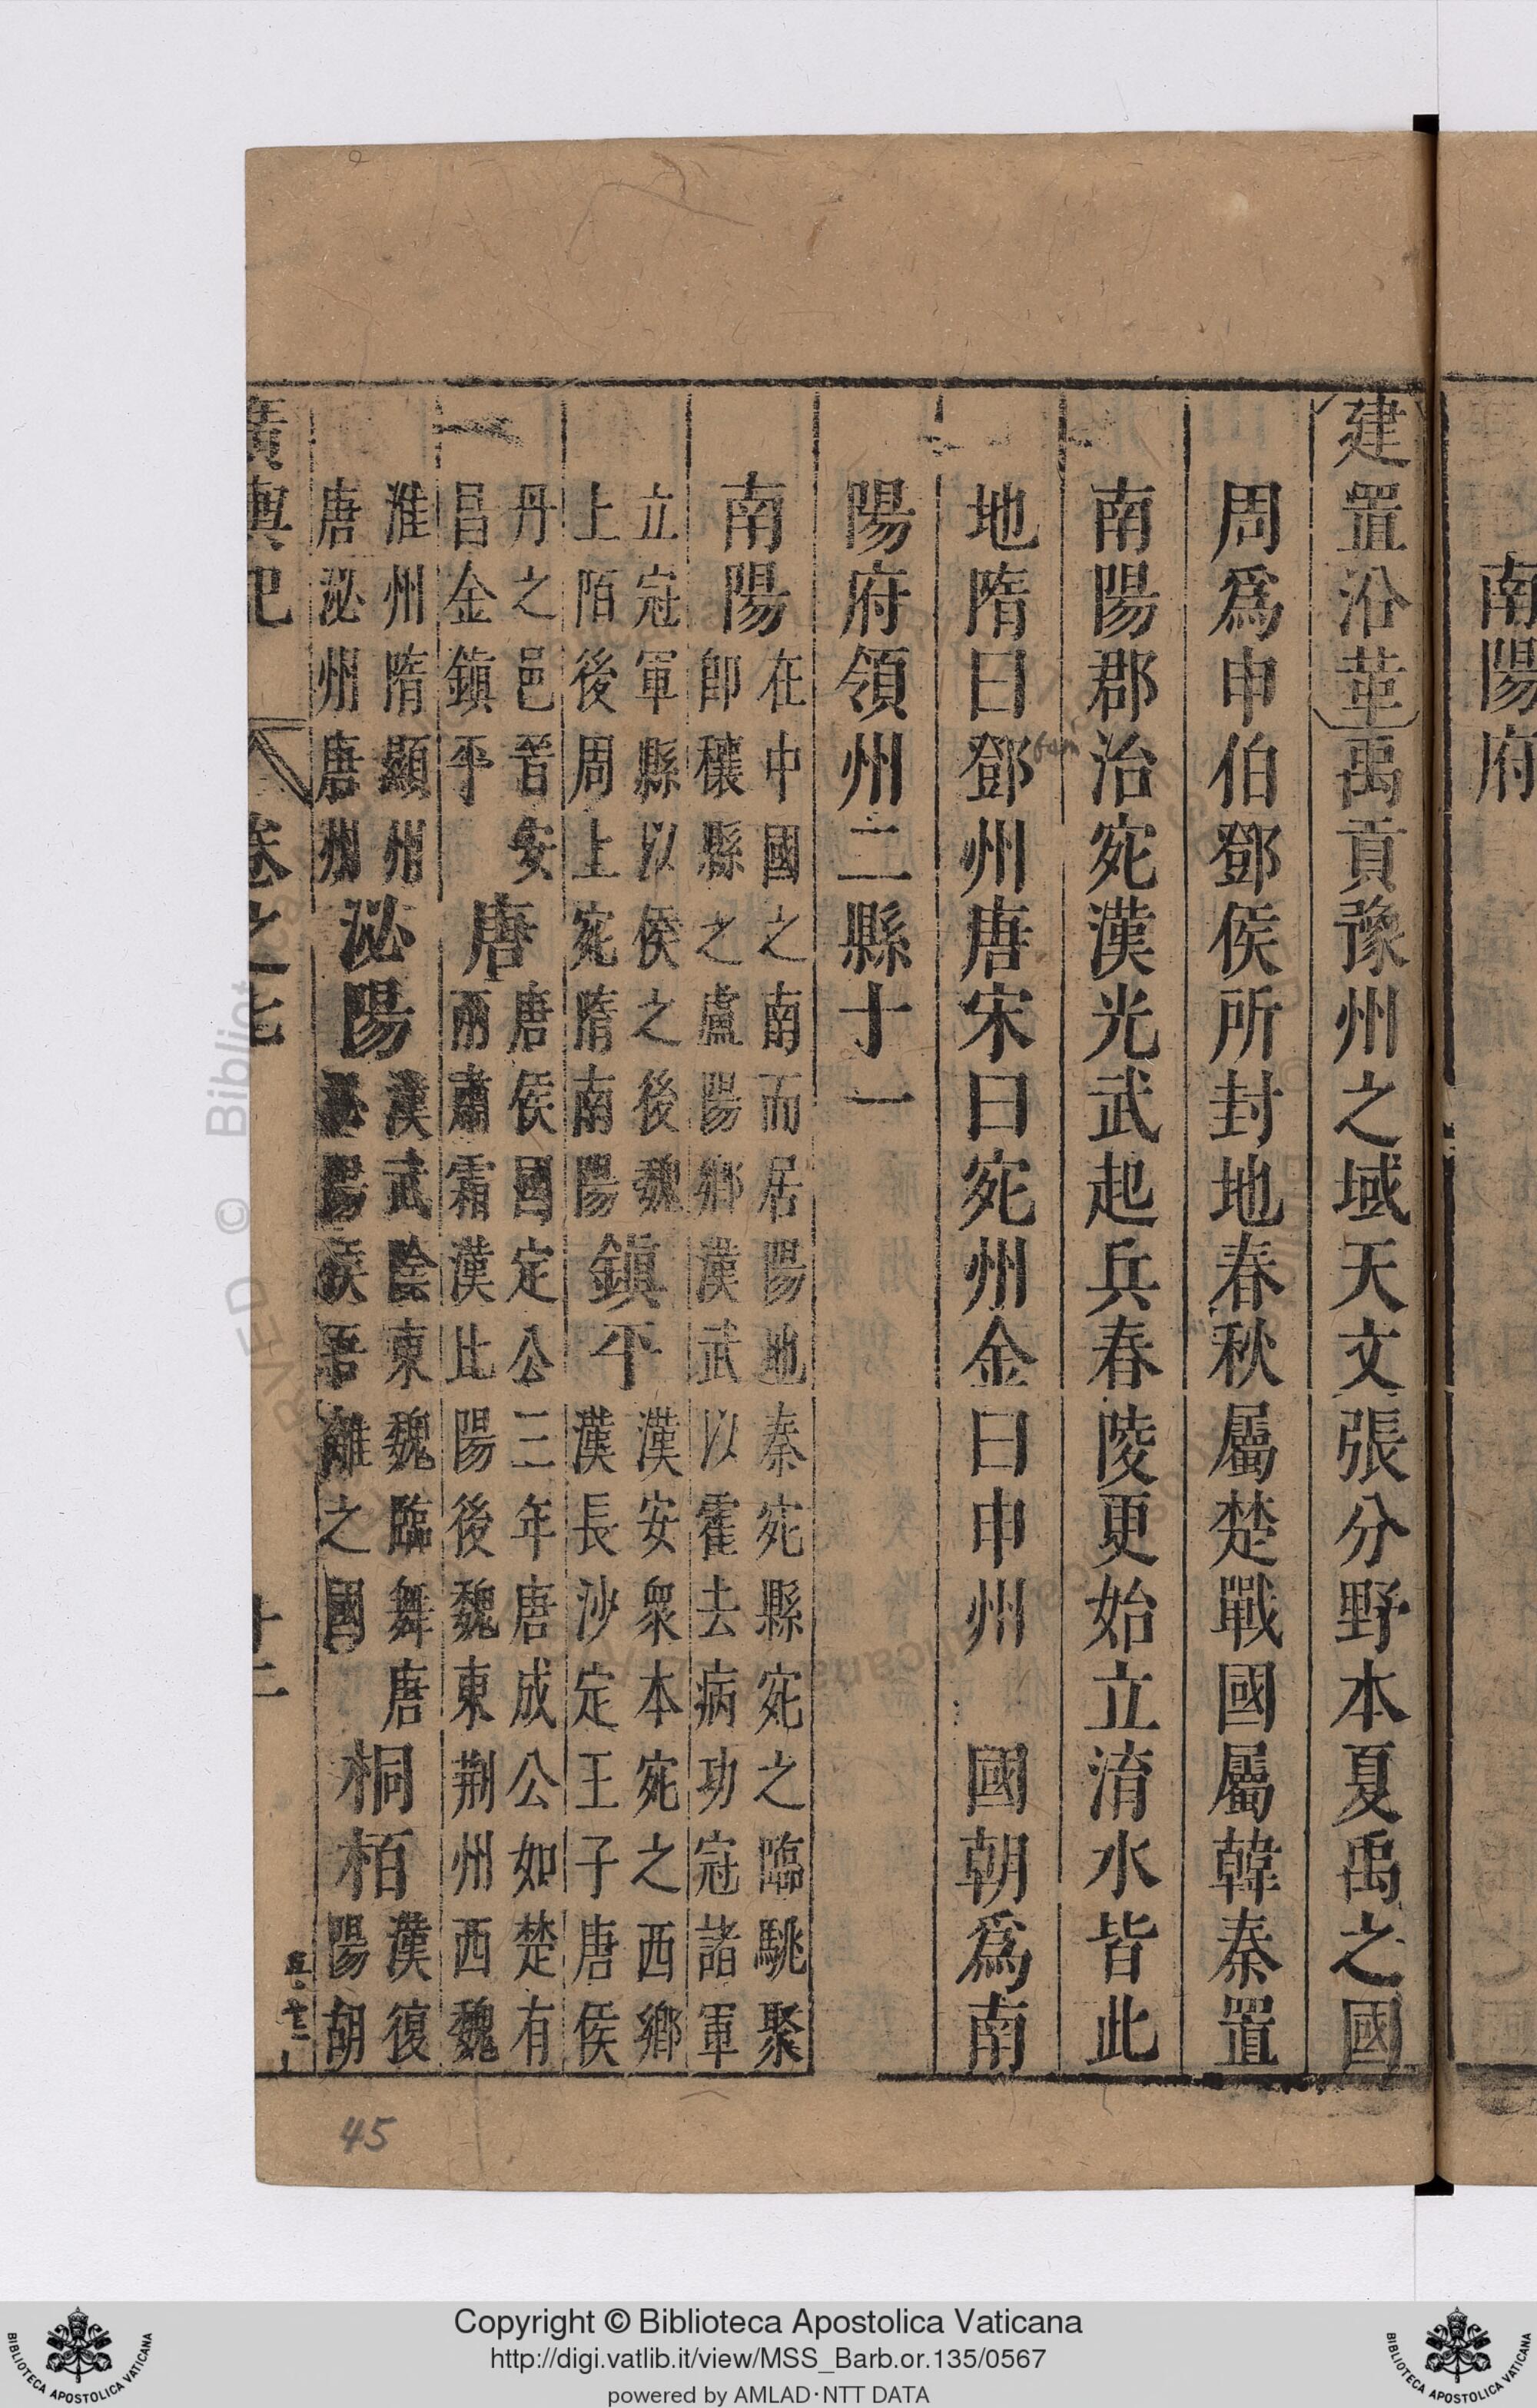 南陽府
建置沿革禹貢豫州之域天文張分野本夏禹之國
周爲申伯鄧侯所封地春秋屬楚戰國屬韓秦置
南陽郡治宛漢光武起兵舂陵更始立淯水皆此
地隋曰鄧州唐宋曰宛州金曰申州 國朝爲南
陽府領州二縣十一
南陽
在中國之南而居陽地秦宛縣宛之臨駣聚
卽穰縣之盧陽鄉漢武以霍去病功冠諸軍
立冠軍縣以侯之後魏
上陌後周上宛隋南陽
鎮平
漢安衆本宛之西鄉
漢長沙定王子唐侯
丹之邑晋安
昌金鎮平
唐
唐侯國定公三年唐成公如楚有
兩肅霜漢比陽後魏東荆州西魏
淮州隋顯州
唐泌州唐州
泌陽
漢武陰東魏臨舞唐
陽侯吾離之國
桐栢
漢復
陽胡
廣輿記 卷之七 十二
45
Copyright © Biblioteca Apostolica Vaticana
http://digi.vatlib.it/view/MSS_Barb.or.135/0567
powered by AMLAD·NTT DATA
BIBLIOTECA APOSTOLICA VATICANA
BIBLIOTECA APOSTOLICA VATICANA